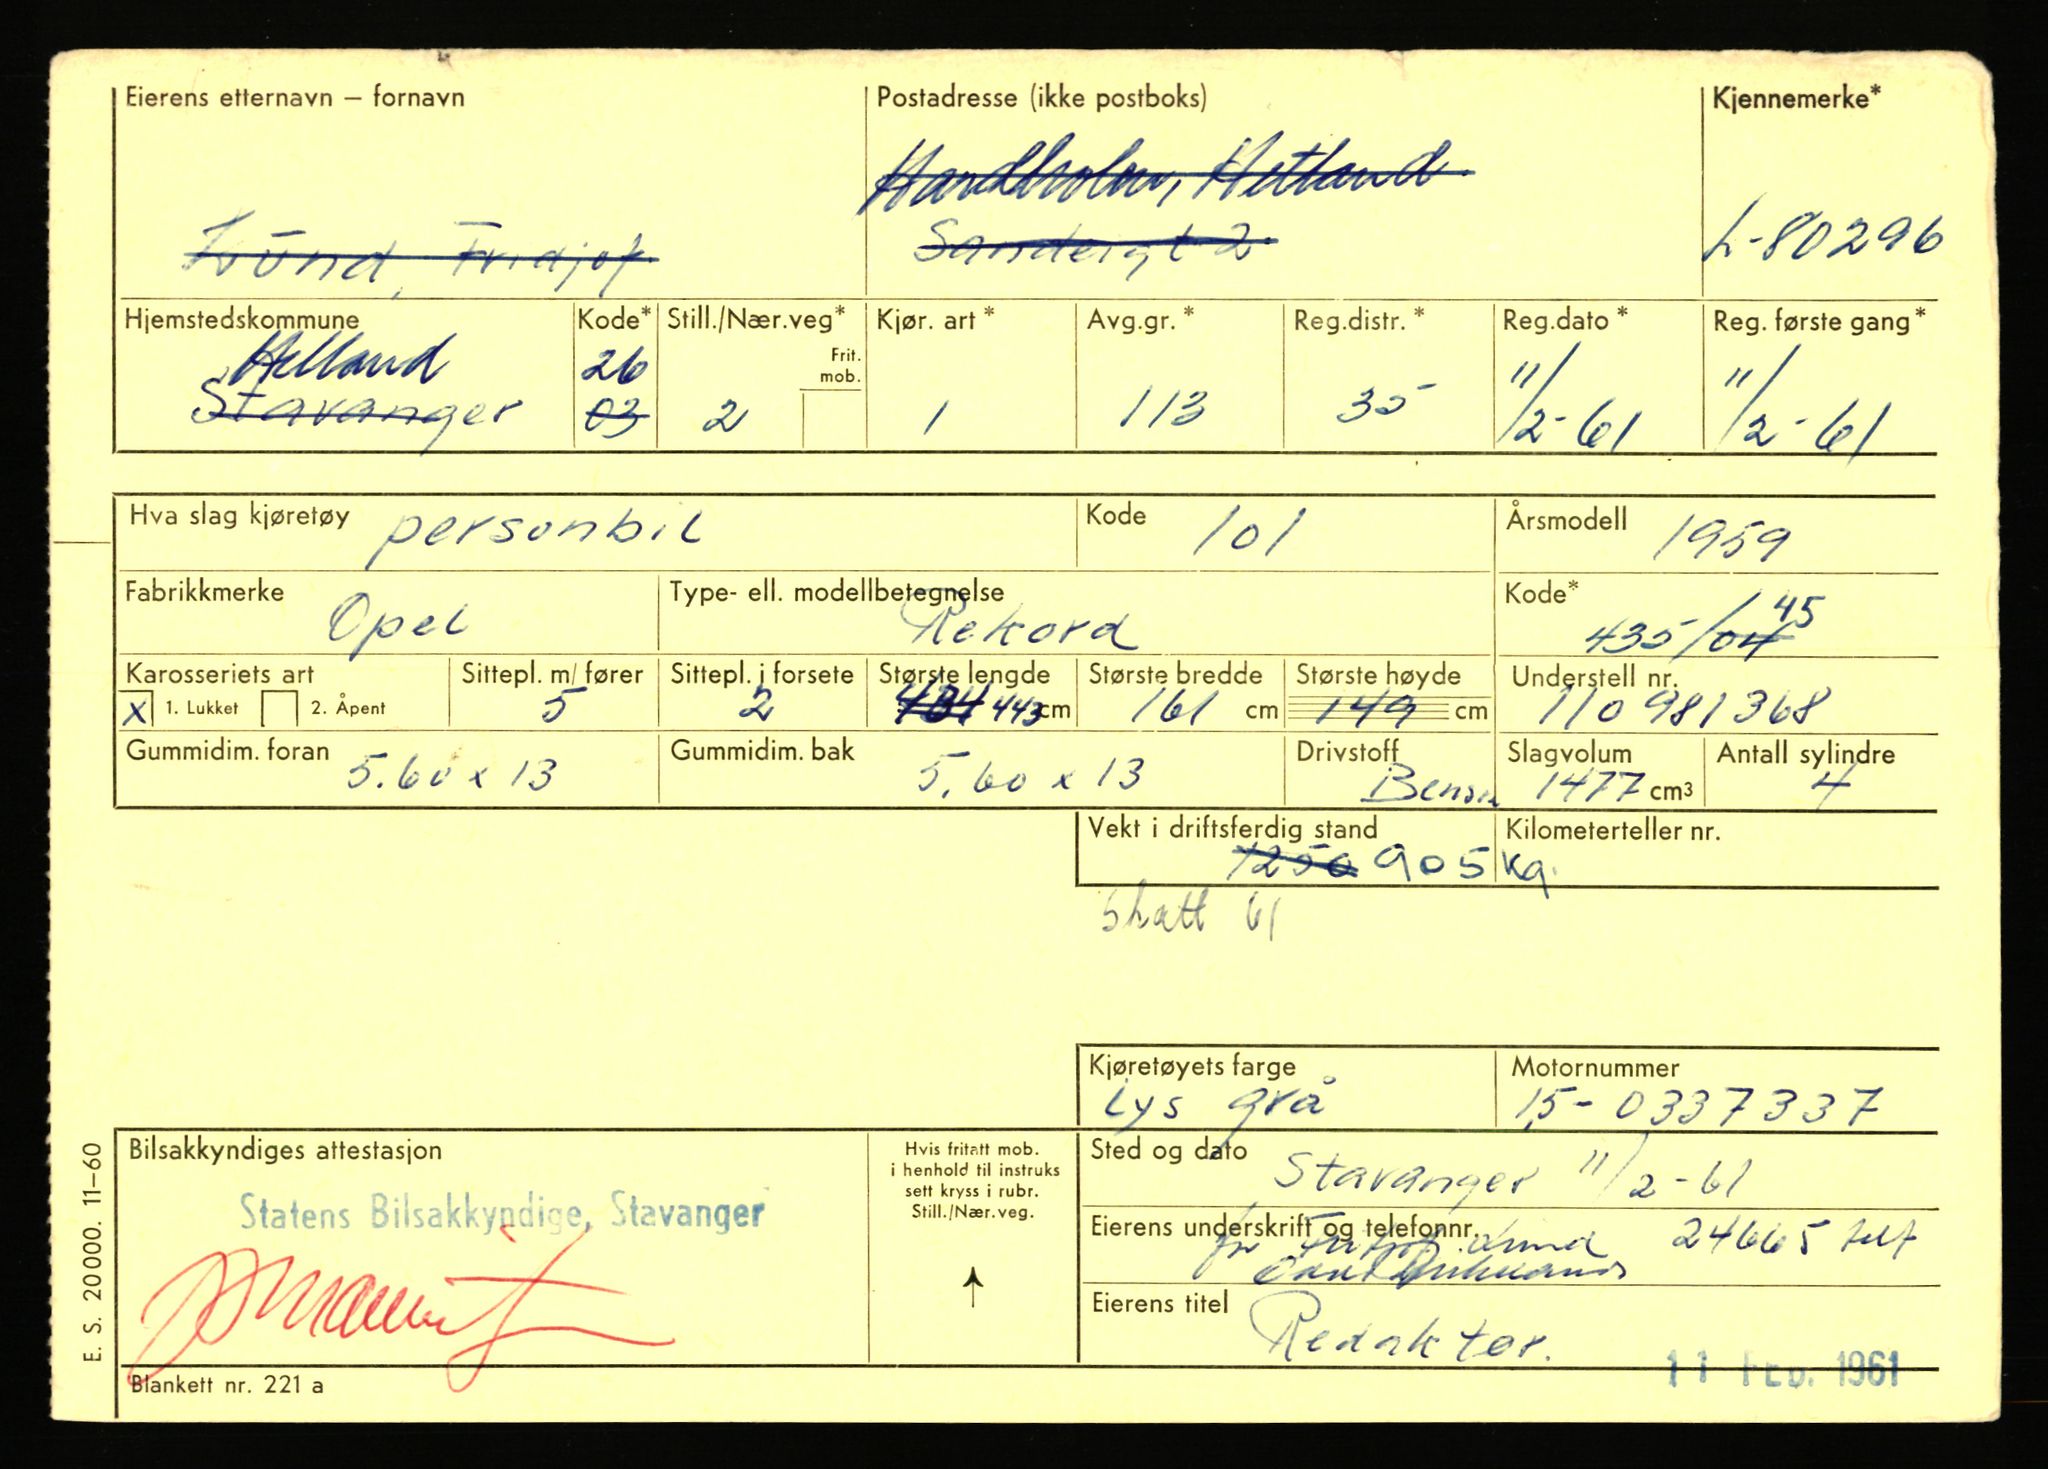 Eierens etternavn – fornavn
Postadresse (ikke postboks)
Kjennemerke*
Hetland
Sandeigt 2
Lund, Fridjof
L-80296
Hjemstedskommune
Kode*
Still./Nær.veg*
Frit. mob.
Kjør. art*
Avg.gr.*
Reg.distr.*
Reg.dato*
Reg. første gang*
Hetland
26
Stavanger
03
2
1
113
35
11/2-61
11/2-61
Hva slag kjøretøy personbil
Kode 101
Årsmodell 1959
Fabrikkmerke Opel
Type- ell. modellbetegnelse Rekord
Kode* 435/04 45
Karosseriets art
X 1. Lukket 2. Åpent
Sittepl. m/ fører 5
Sittepl. i forsete 2
Største lengde 443 cm
Største bredde 161 cm
Største høyde 149 cm
Understell nr. 110981368
Gummidim. foran 5.60 x 13
Gummidim. bak 5.60 x 13
Drivstoff Bensin
Slagvolum 1477 cm3
Antall sylindre 4
Vekt i driftsferdig stand 1250 905 kg.
Kilometerteller nr.
skatt 61
Kjøretøyets farge lys grå
Motornummer 15-0337337
Bilsakkyndiges attestasjon
Statens Bilsakkyndige, Stavanger
Hvis fritatt mob.
i henhold til instruks
sett kryss i rubr.
Still./Nær.veg.
Sted og dato Stavanger 11/2-61
Eierens underskrift og telefonnr. 24665 telf
for Fridjof Lund
Eierens titel Redaktør.
11 Feb. 1961
Blankett nr. 221 a
E. S. 20000. 11–60